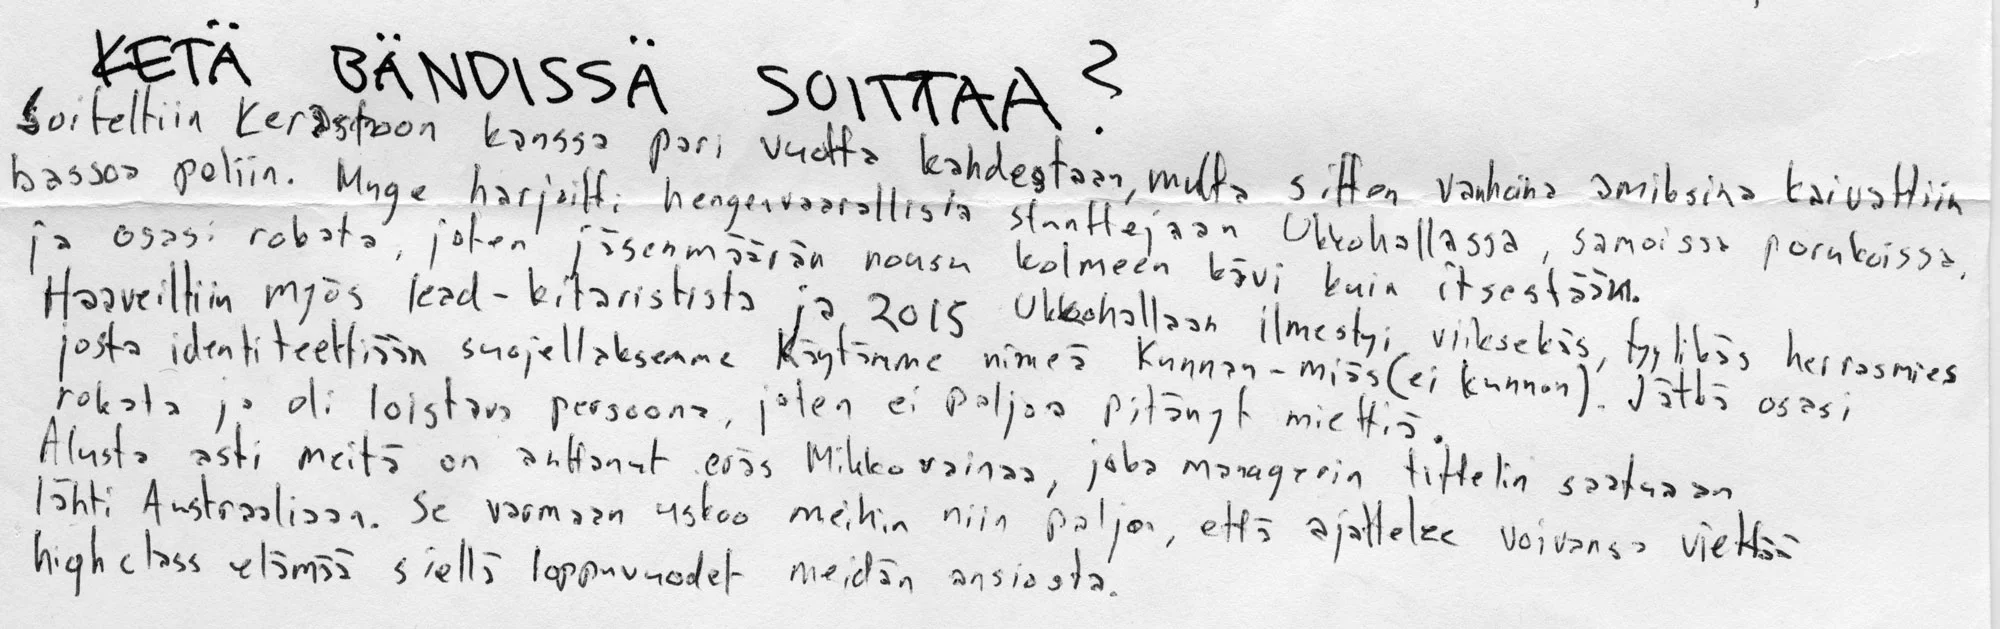 KETÄ BÄNDISSÄ SOITTAA?
Soiteltiin Kerastoon kanssa pari vuotta kahdestaan, mutta sitten vanhoina amiksina kaivattiin
bassoa peliin. Myge harjoitti hengenvaarallisia stunttejaan Ukkohallassa, samoissa porukoissa,
ja osasi rokata, joten jäsenmäärän nousu kolmeen kävi kuin itsestään.
Haaveiltiin myös lead-kitaristista ja 2015 Ukkohallaan ilmestyi viiksekäs, tyylikäs herrasmies
josta identiteettiään suojellaksemme käytämme nimeä Kunnan-miäs (ei kunnon). Jätkä osasi
rokata ja oli loistava persoona, joten ei paljoa pitänyt miettiä.
Alusta asti meitä on auttanut eräs Mikkovainaa, joka managerin tittelin saatuaan
lähti Australiaan. Se varmaan uskoo meihin niin paljon, että ajattelee voivansa viettää
highclass elämää siellä loppuvuodet meidän ansiosta.